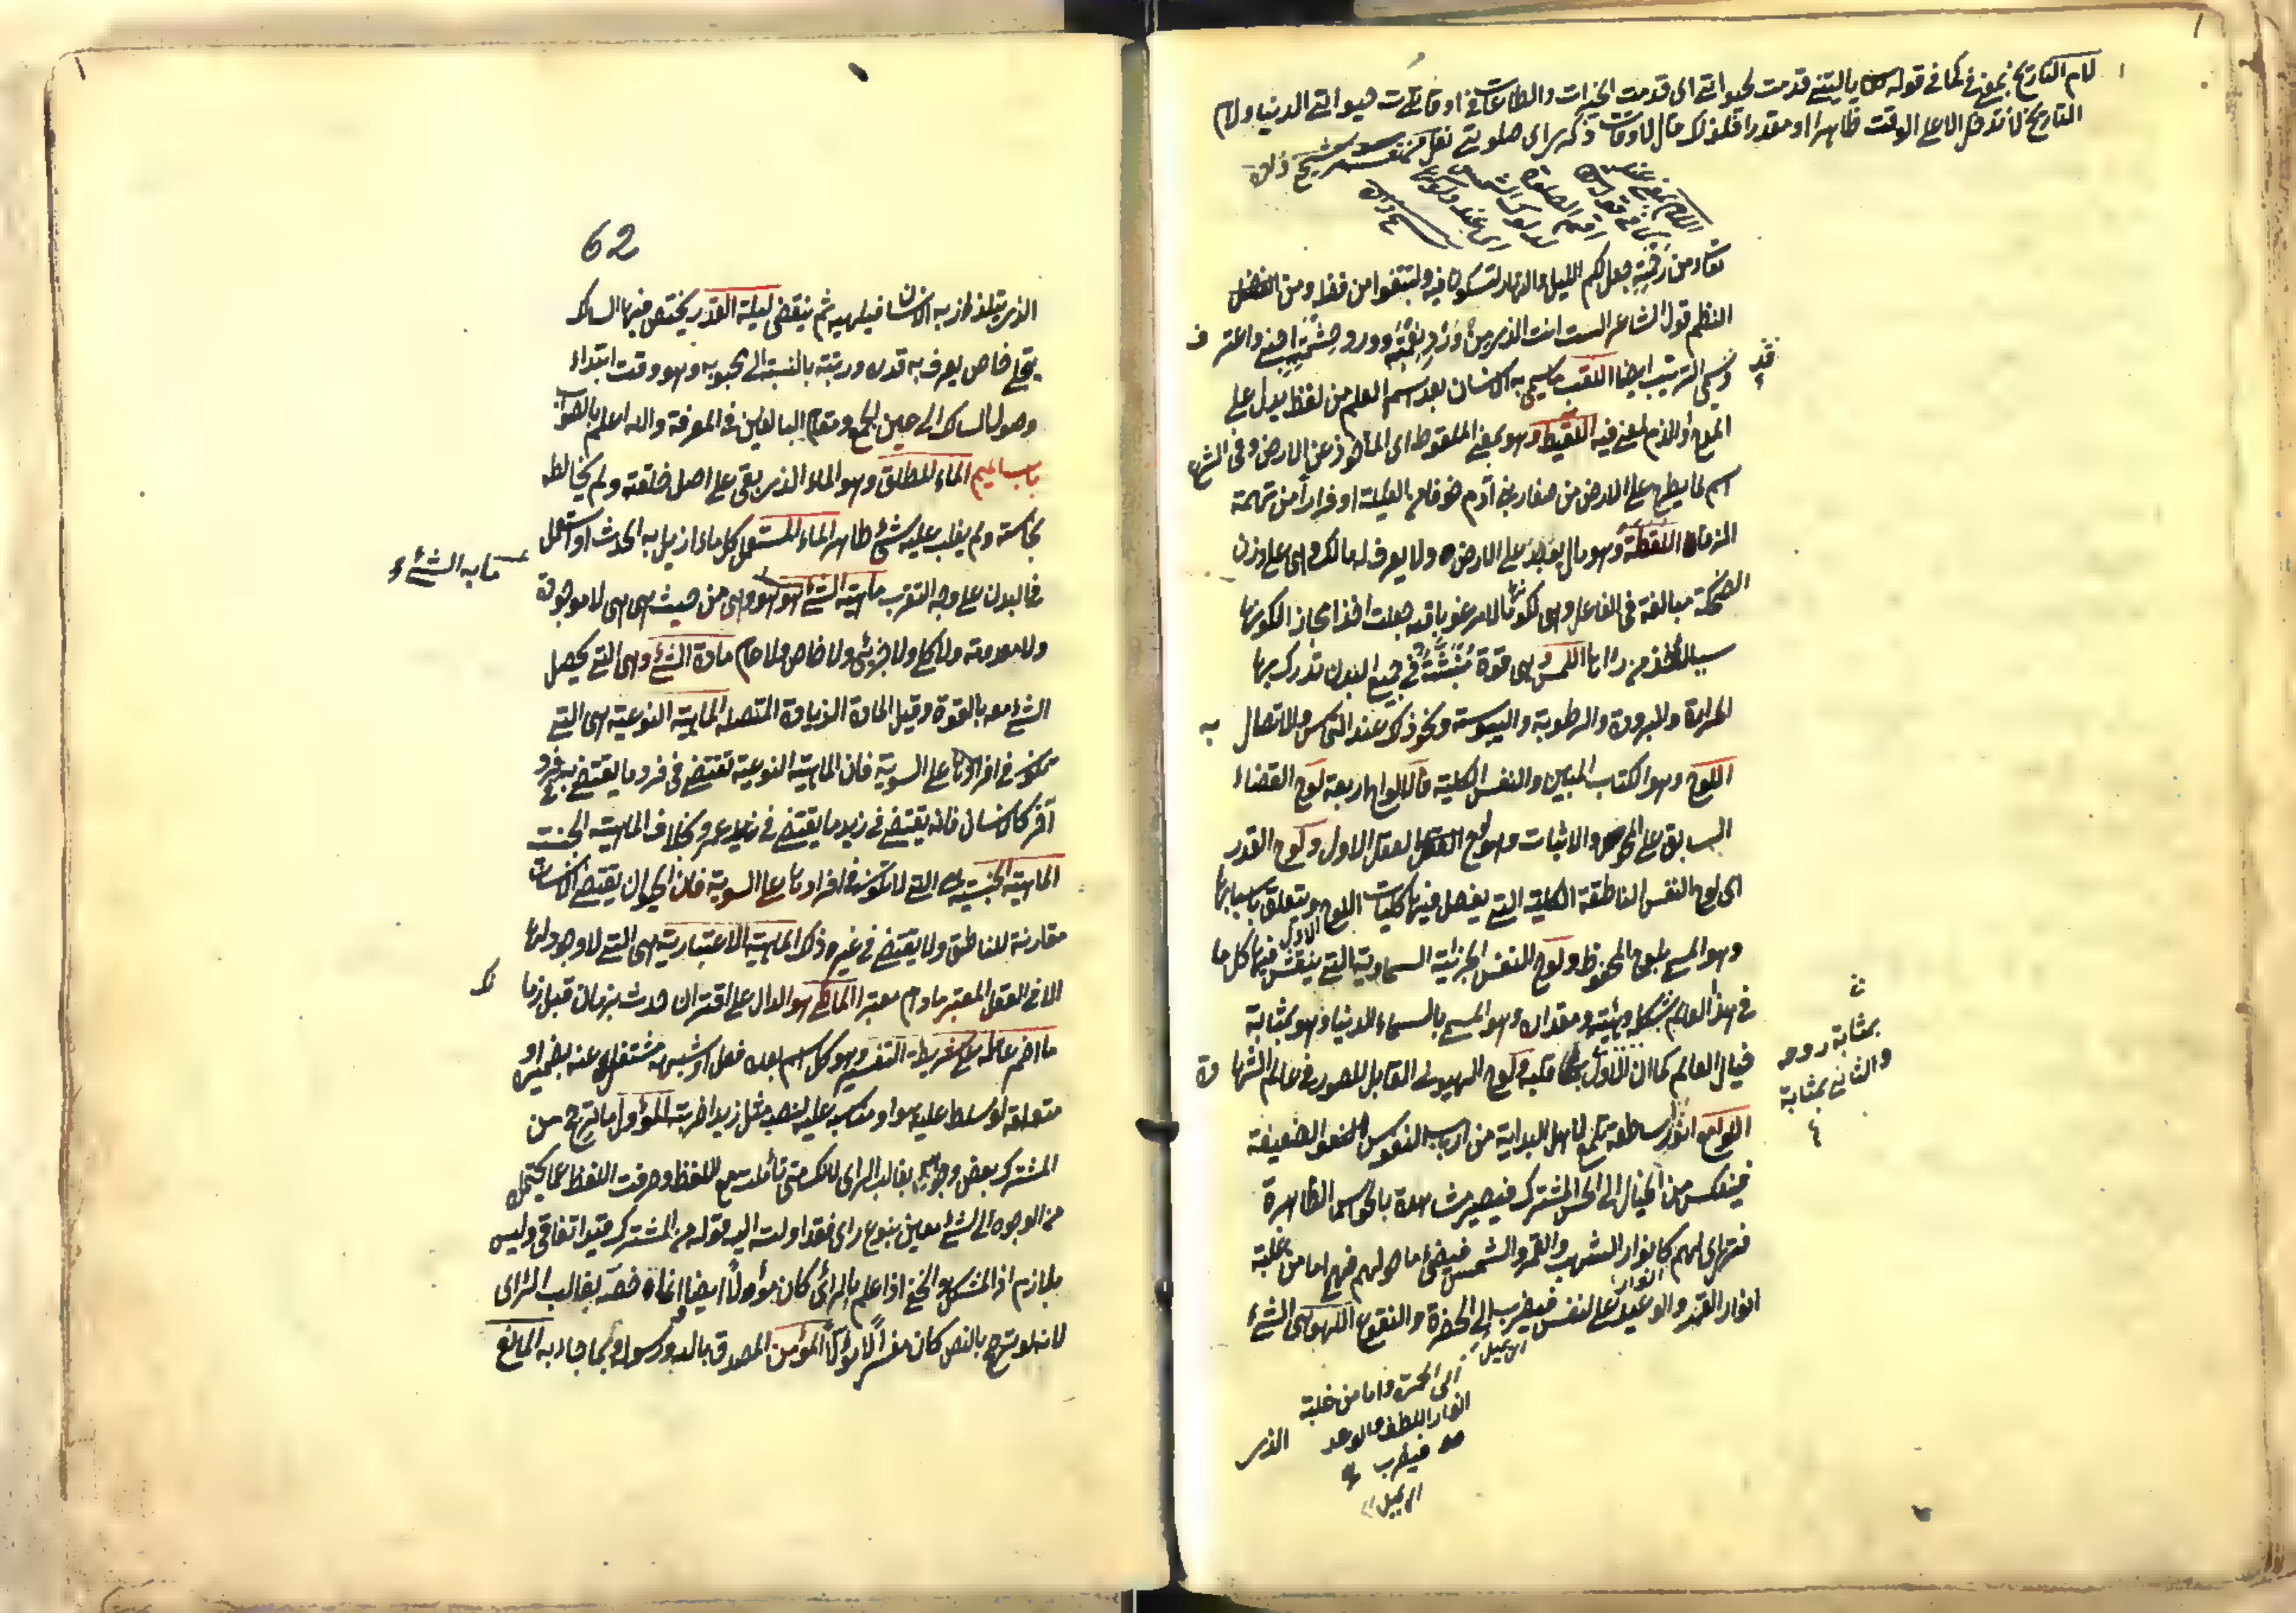 لام التاريخ بمعنى في كما في قوله يا ليتني قدمت لحيواتي اى قدمت الخيرات والطاعات في اوقات حيواتي الدنيا ولام
التاريخ لا تدخل الا على الوقت ظاهرا او مقدرا فلذلك قال لاوقات ذكره اى صلوتي نقل من
اللام بمعنى عند
في قوله
اقم الصلوة
لدلوك الشمس
اى عند دلوكها
تعالى ومن رحمته جعل لكم الليل والنهار لتسكنوا فيه ولتبتغوا من فضله ومن
النظم قول الشاعر الست انت الذى من ورد نعمته وورد حشمته اجنى واعترف
قد يسمى الترتيب ايضا اللقب ما يسمى به الانسان بعد اسم العلم من لفظ يدل على
المدح او الذم لمعنى فيه اللقيط وهو بمعنى الملقوط اى المأخوذ عن الارض وفى الشرع
اسم لما يطرح على الارض من صغار بنى آدم خوفا من العيلة او فرارا من تهمة
الزنا اللقطة وهو مال يوجد على الارض ولا يعرف له مالك وهى على وزن
الضحكة مبالغة فى الفاعل وهى لكونها مالا مرغوبا فيه جعلت اخذا مجازا لكونها
سببا لاخذ من رآها اللمس وهى قوة منبثة فى جميع البدن تدرك بها
الحرارة والبرودة والرطوبة واليبوسة ونحو ذلك عند التماس والاتصال به
اللوح وهو الكتاب المبين والنفس الكلية فالالواح اربعة لوح القضاء
السابق على المحو والاثبات وهو لوح العقل الاول ولوح القدر
اى لوح النفس الناطقة الكلية التى يفصل فيها كليات اللوح الاول ويتعلق باسبابها
وهو المسمى باللوح المحفوظ ولوح النفس الجزئية السماوية التى ينتقش فيها كل ما
فى هذا العالم بشكله وهيئته ومقداره وهو المسمى بالسماء الدنيا وهو بمثابة
خيال العالم كما ان الاول بمثابة روحه والثانى بمثابة قلبه ولوح الهيولى القابل للصور فى عالم الشهادة
اللوامع انوار ساطعة تلمع لاهل البداية من ارباب النفوس الضعيفة
فينعكس من الخيال الى الحس المشترك فيصير مشاهدة بالحواس الظاهرة
فتتراى لهم كانوار الشهب والقمر والشمس فيضىء ما حولهم فهى اما من غلبة
انوار القهر والوعيد على النفس فيضرب الى الحمرة واما من غلبة انوار اللطف والوعد فيضرب الى الخضرة والنقوع اللهو هى الشىء
الذى
62
الذى يتلذذ به الانسان فيلهيه ثم ينقضى ليلة القدر يختص فيها السالك
بتجلى خاص يعرف به قدره ورتبته بالنسبة الى محبوبه وهو وقت ابتداء
وصول السالك الى عين الجمع ومقام البالغين فى المعرفة والله اعلم بالصواب
باب الميم الماء المطلق وهو الماء الذى بقى على اصل خلقته ولم يخالطه
نجاسة ولم يغلب عليه شىء طاهر الماء المستعمل كل ماء ازيل به الحدث او استعمل
فى البدن على وجه التقرب ماهية الشىء ما به الشىء هو هو وهى من حيث هى هى لا موجودة
ولا معدومة ولا كلى ولا جزئى ولا خاص ولا عام مادة الشىء وهى التى يحصل
الشىء معه بالقوة وقيل المادة الزيادة المتصلة الماهية النوعية هى التى
تكون فى افرادها على السوية فان الماهية النوعية تقتضى فى فرد ما يقتضى به فرد
آخر كالانسان فانه يقتضى فى زيد ما يقتضى فى عمرو بخلاف الماهية الجنسية
الماهية الجنسية هى التى لا تكون فى افرادها على السوية فان الحيوان يقتضى فى الانسان
مقارنة للناطق ولا يقتضى فى غير ذلك الماهية الاعتبارية هى التى لا وجود لها
الا فى العقل المعتبر ما دام معتبرا الماضى هو الدال على اقتران حدث بزمان قبل زمانك
ما اضمر عامله على شريطة التفسير وهو كل اسم بعده فعل او شبهه مشتغل عنه بضميره او
متعلقه لو سلط عليه هو او مناسبه عليه لنصبه مثل زيدا ضربته المؤول ما ترجح من
المشترك بعض وجوهه بغالب الراى لانك متى تأملت موضع اللفظ وصرفت اللفظ عما يحتمله
من الوجوه الى شىء معين بنوع راى فقد اولته اليه قوله من المشترك قيد اتفاقى وليس
بلازم اذ المشكل والخفى اذا علم بالراى كان مؤولا ايضا وانما خصه بغالب الراى
لانه لو ترجح بالنص كان مفسرا لا مؤولا المؤمن المصدق بالله ورسوله وبما جاء به المانع